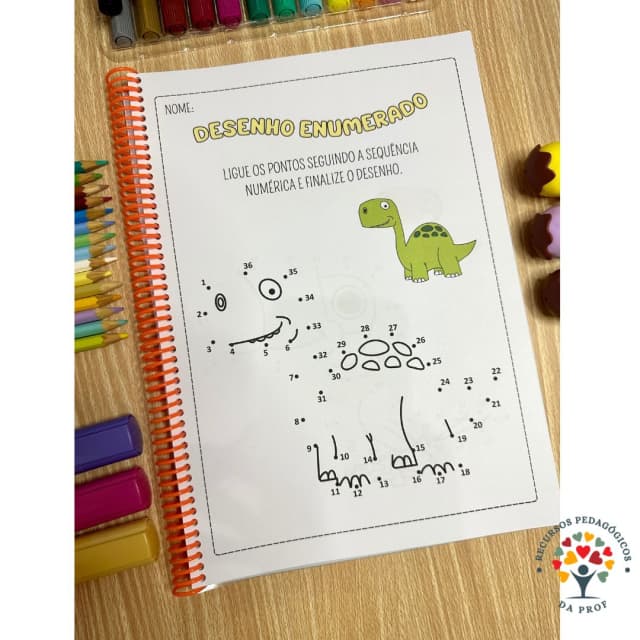 NOME:
DESENHO ENUMERADO
LIGUE OS PONTOS SEGUINDO A SEQUÊNCIA
NUMÉRICA E FINALIZE O DESENHO.
36
35
1
34
2
33
3
4
5
6
28
27
29
26
32
25
7
30
22
24
23
31
21
8
20
19
9
10
14
15
18
16
17
11
12
13
RECURSOS PEDAGÓGICOS
DA PROF